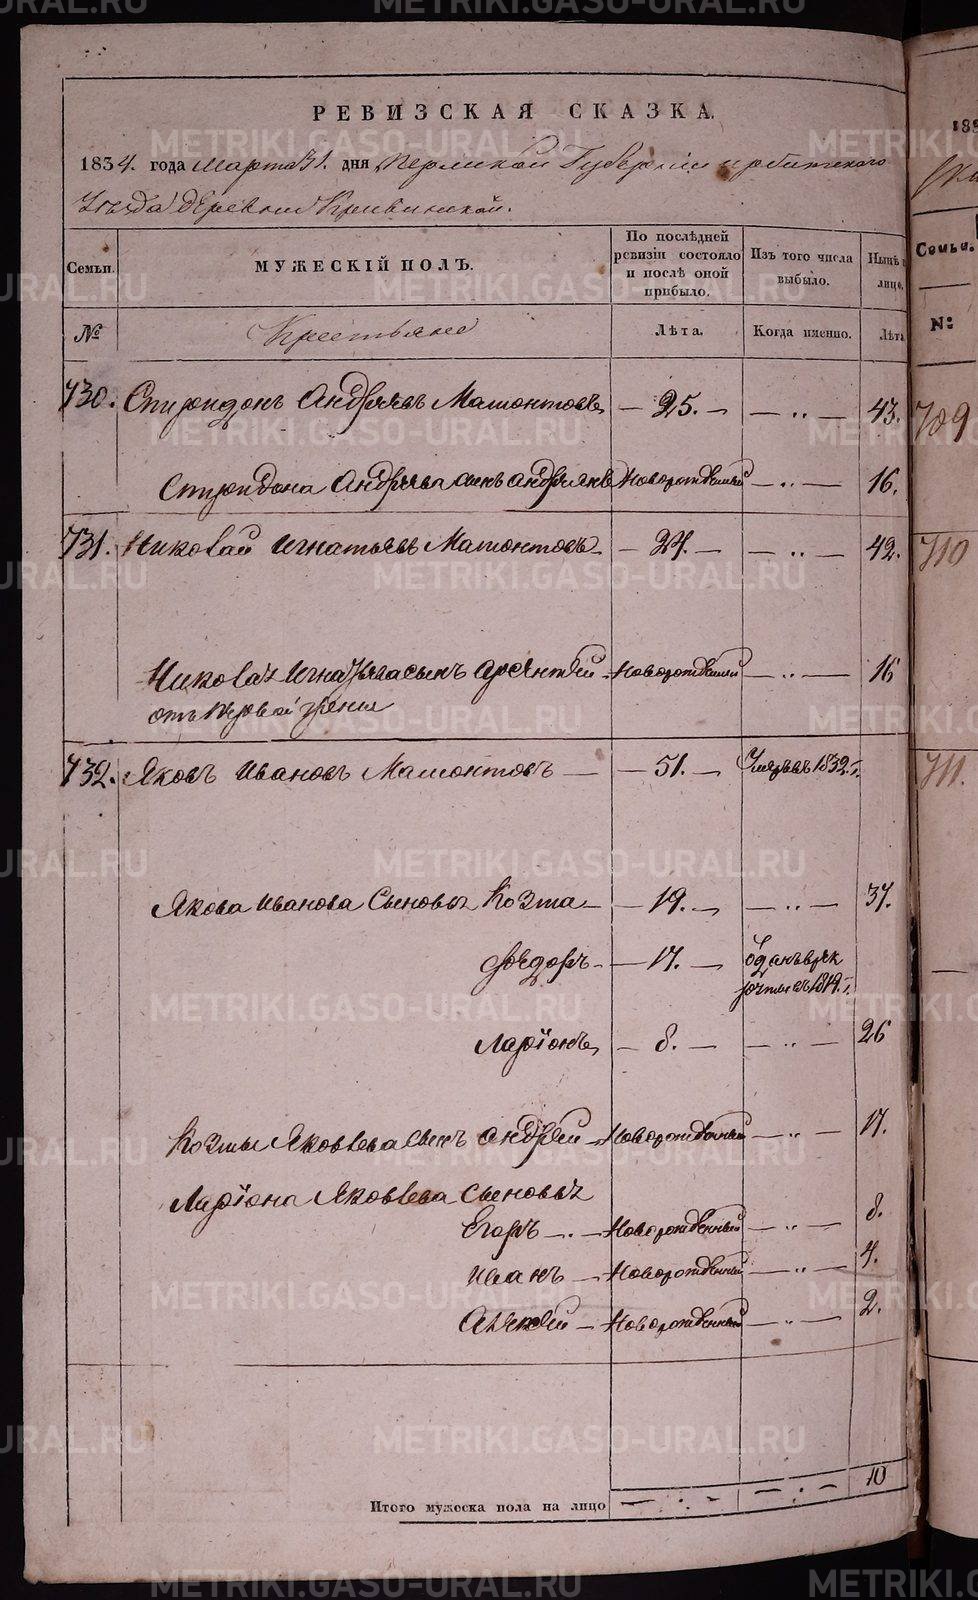 РЕВИЗСКАЯ СКАЗКА.
1834. года Марта 31. дня Пермской Губернии Ирбитского
Уезда деревни Кривинской.
Семьи. МУЖЕСКІЙ ПОЛЪ. По послѣдней ревизіи состояло и послѣ оной прибыло. Изъ того числа выбыло. Нынѣ
лицо.
№ Крестьяне Лѣта. Когда именно. Лѣта
730. Спиридонъ Андреевъ Мамонтовъ — 25. — — „ — 43.
Спиридона Андреева сынъ Андреянъ Новорожденный — „ — 16.
731. Николай Игнатьевъ Мамонтовъ — 24. — — „ — 42.
Николая Игнатьева сынъ Арсентей Новорожденный — „ — 16
отъ первой жены
732. Яковъ Ивановъ Мамонтовъ — — 51. — Умеръ въ 1832. г.
Якова Иванова Сыновья Козма — — 19. — — „ — 37.
Федоръ — — 17. — Отданъ в рек
руты въ 1819. г.
Ларіонъ — 8. — — „ — 26
Козмы Яковлева сынъ Андрей — Новорожденный — „ — 17.
Ларіона Яковлева Сыновья
Егоръ — Новорожденный — „ — 8.
Иванъ — Новорожденный — „ — 4.
Алексей — Новорожденный — „ — 2.
Итого мужеска пола на лицо 10
Семьи.
№
709
710
711.
METRIKI.GASO-URAL.RU